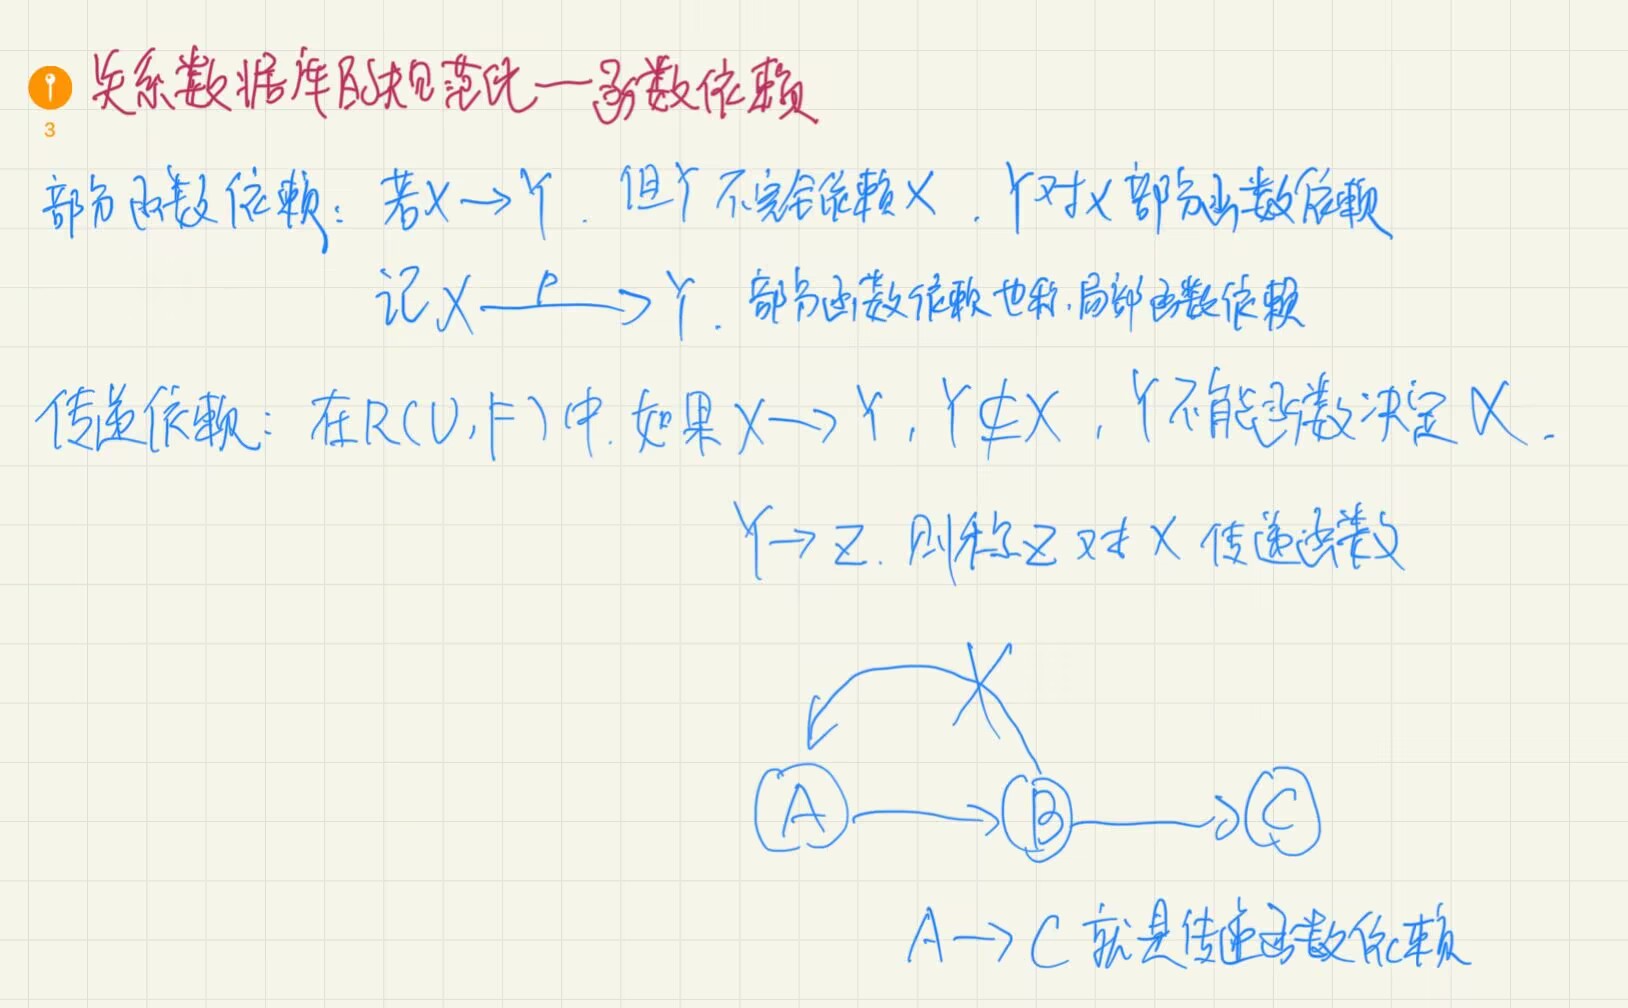 3
关系数据库的规范化—函数依赖
部分函数依赖：若X→Y．但Y不完全依赖X．Y对X部分函数依赖
记X—P→Y．部分函数依赖也称.局部函数依赖
传递依赖：在R(U,F)中.如果X→Y，Y⊄X，Y不能函数决定X．
Y→Z．则称Z对X传递函数
A B C
A→C就是传递函数依赖